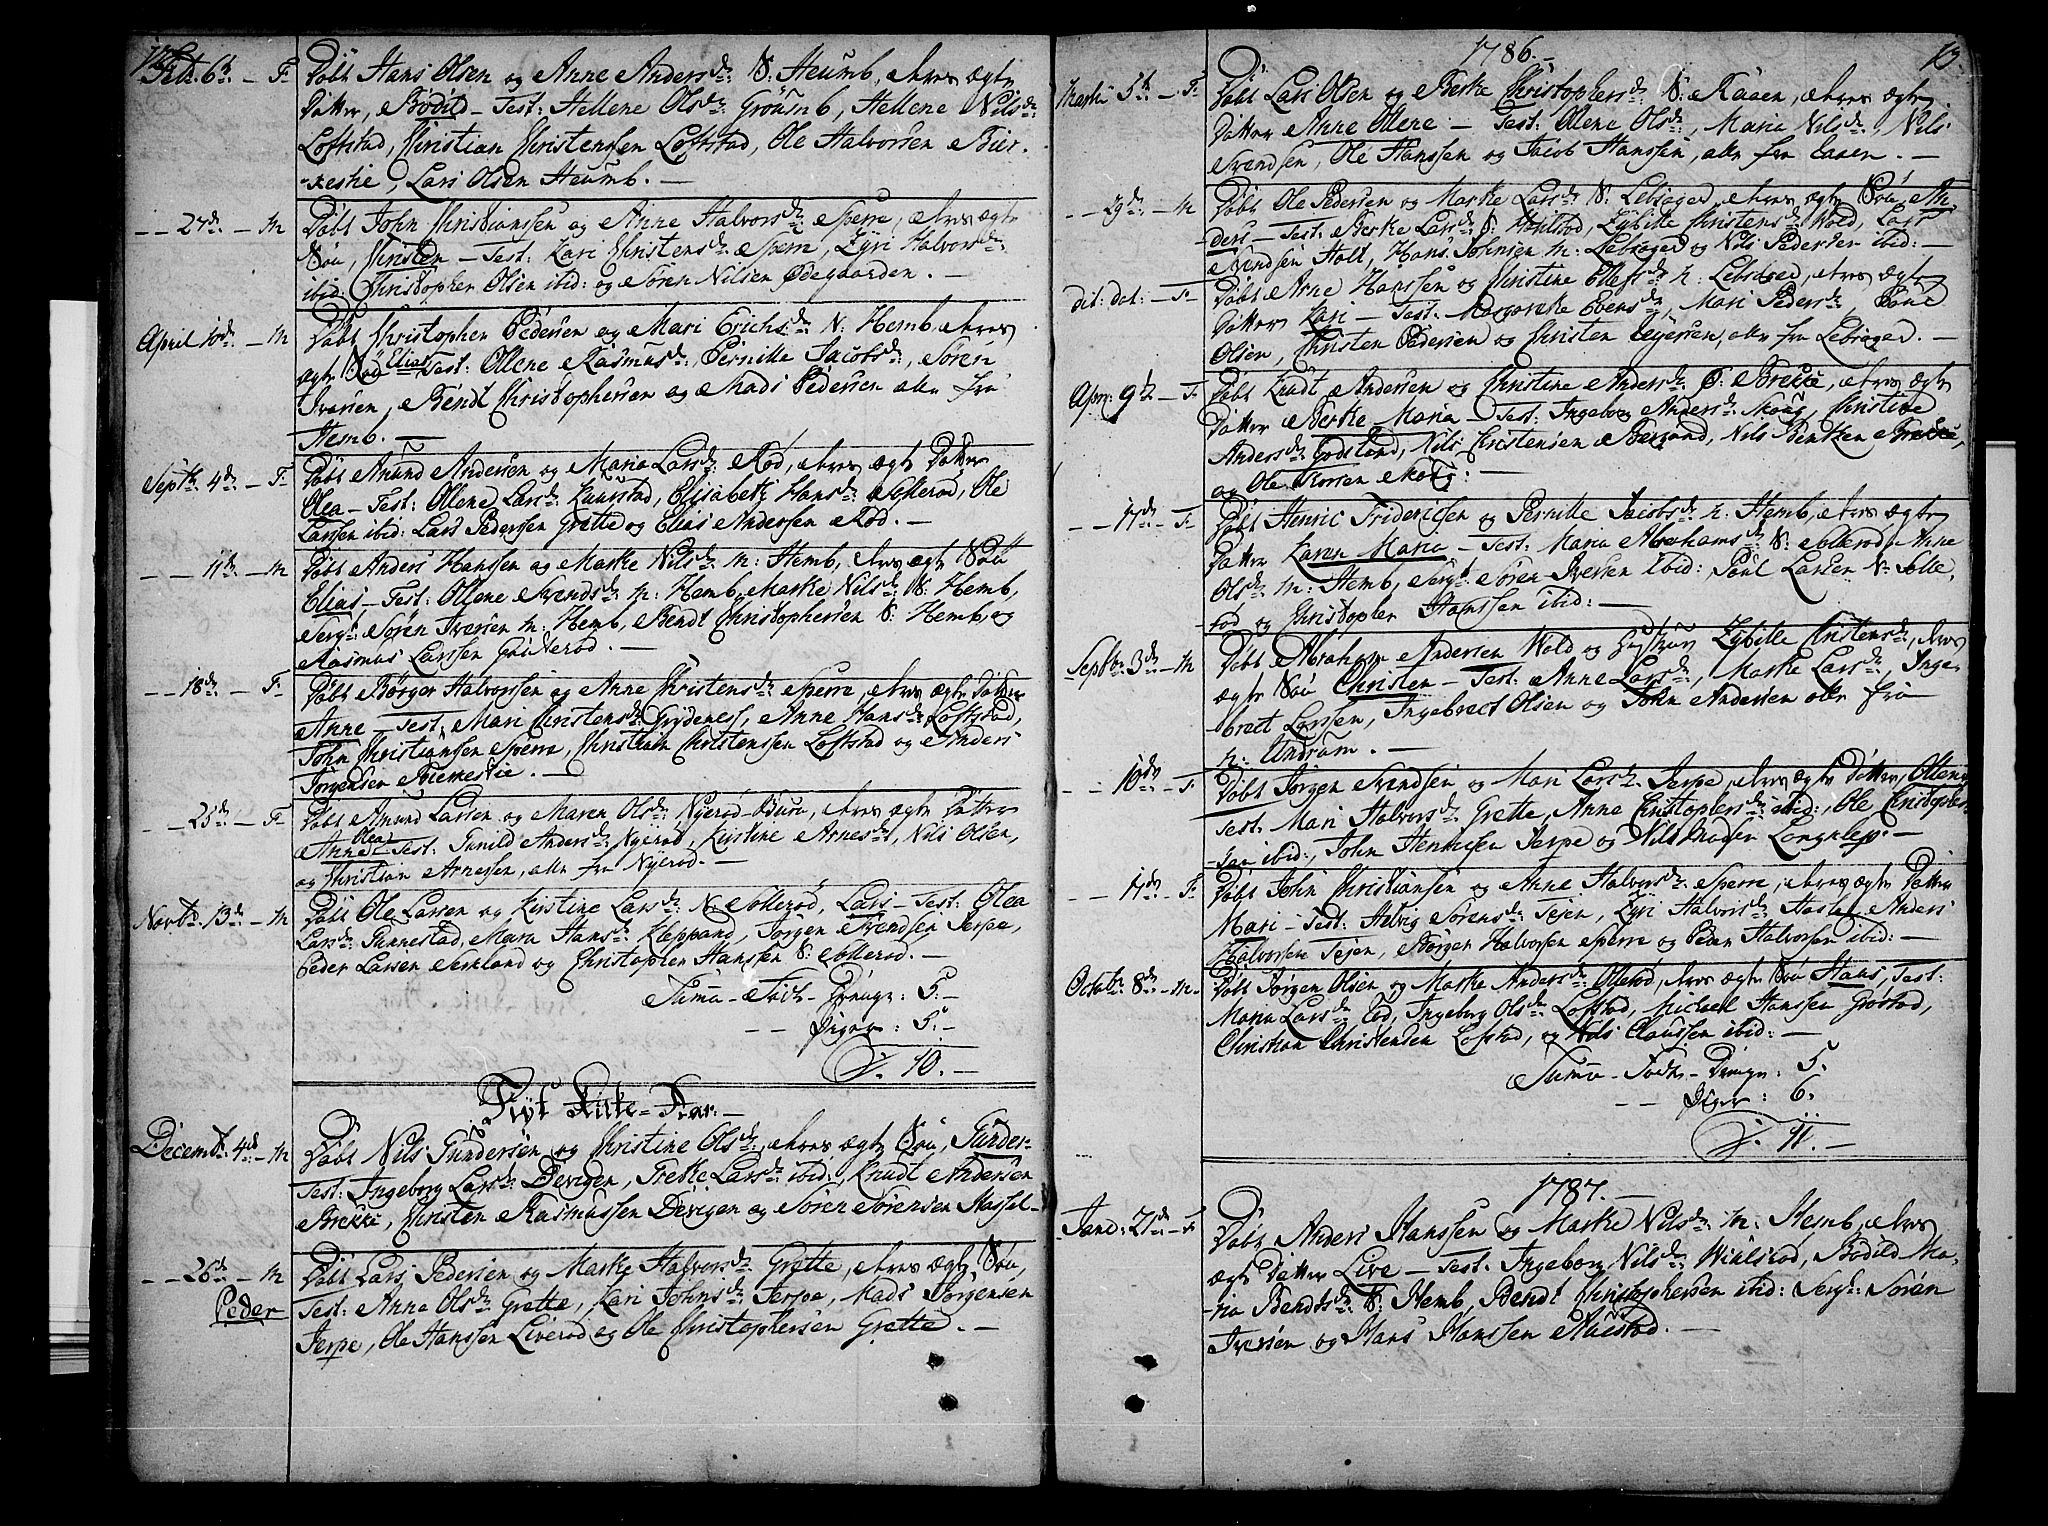 12.
Febr. 6t. – F. Döbt Hans Olsen og Anne Andersdr: S: Heumb, deres ægte
Datter, Bodil – Test: Hellene Olsdr: Gröumb, Hellene Nilsdr:
Loftstad, Christian Christenssen Loftstad, Ole Halvorssen Bier-
-keskie, Lars Olsen Heumb. –
– – 27de. – M Döbt John Christianssen og Anne Halvorsdr: Sperre, deres ægte
Søn, Christen – Test: Kari Christensdr: Sperre, Zyri Halvorsdr:
ibid: Christopher Olsen ibid: og Sören Nilsen Ödegaarden. –
April 10de. – M Döbt Christopher Pedersen og Mari Erichsdr: N: Hemb, deres
ægte Søn Elias Test: Ollene Rasmusdr:, Pernille Jacobsdr:, Sören
Iversen, Bendt Christophersen og Mads Pedersen alle fra
Hemb. –
Septbr. 4de. – F. Döbt Amund Andersen og Maria Larsdr: Röd, deres ægte Datter
Olea – Test: Ollene Larsdr: Kaurstad, Elisabeth Hansdr: Sollerød, Ole
Larssen ibid: Lars Pederssen Grette og Elias Andersen Röd. –
– – 11te. – M Döbt Anders Hanssen og Marthe Nilsdr: M: Hemb, deres ægte Søn
Elias, – Test: Ollene Svendsdr: M: Hemb, Marthe Nilsdr: S: Hemb,
Sergt: Sören Iversen M: Hemb, Bendt Christophersen S: Hemb, og
Rasmus Larssen Gouterød. –
– – 18de. – F. Döbt Börger Halvorssen og Anne Christensdr: Sperre, deres ægte Datter
Anne – Test, Mari Christensdr: Grydeness, Anne Hansdr: Loftstad,
John Christianssen Sperre, Christian Christenssen Loftstad og Anders
Jørgensen Bierkeskie. –
– – 25de – F. Döbt Amund Larsen og Maren Olsdr: Nyerød, deres ægte Datter
Anne Olea – Test: Gunild Andersdr: Nyerød, Kirstine Arnesdr:, Nils Olsen,
og Christian Arnessen, alle fra Nyerød. –
Novbr. 13de – M Döbt Ole Larsen og Kirstine Larsdr: N: Sollerød, Lars – Test: Olea
Larsdr: Gunnestad, Maria Hansdr: Kleppand, Jørgen Svendsen Jerpe,
Peder Larsen Semland og Christopher Hanssen S: Sollerød. –
Suma – Födte – Drenge: 5. –
– – Piger: 5. –
S. 10. –
Nyt Kirke-Aar. –
Decembr. 4de – M Döbt Nils Gundersen og Christine Olsdr:, deres ægte Søn, Gunder –
Test: Ingeborg Larsdr: Devigen, Larsdr: ibid:, Knudt Andersen
Brekke, Christen Rasmussen Devigen og Sören Sörensen Hassel-
– – 26de. – M Döbt Lars Pedersen og Marthe Halvorsdr: Grette, deres ægte Søn,
Peder Test: Anna Olsdr: Grette, Kari Johnsdr: Jerpe, Mads Jørgensen
Jerpe, Ole Hanssen Liverød og Ole Christophersen Grette. –
1786. – 13.
Martii 5te – F. Döbt Lars Olsen og Berthe Christophersdr: S: Raaen, deres ægte
Datter Anne Ollene – Test: Ollene Olsdr:, Maria Nilsdr:, Nils
Svendsen, Ole Hanssen og Jacob Hanssen, alle fra Raaen. –
– – 29de. – M Döbt Ole Pedersen og Marthe Larsdr: S: Lebsager, deres ægte Søn, An-
ders – Test: Berthe Larsdr: S: Zybille Christensdr: Wold, Lars
Svendsen Holt, Hans Johnsen M: Lebsager og Nils Pedersen ibid: –
dit: dat: – F. Döbt Arne Hanssen og Christine Ellefsdr: N: Lebsager, deres ægte
Datter Kari – Test: Margrethe Evensdr:, Mari Pedersdr:,
Olsen, Christen Pedersen og Christen alle fra Lebsager. –
Apr: 9de – F. Döbt Knudt Andersen og Christine Andersdr: Ö: Brekke, deres ægte
Datter Berthe Maria – Test: Ingeborg Andersdr: Skoug, Christine
Andersdr: Nils Christensen Berzand, Nils Bentzen Brekke,
og Ole Skoug: –
– – 17de – F. Döbt Henric Fridericsen og Pernille Jacobsdr: N: Hemb, deres ægte
Datter Karen Maria – Test: Maria Abrahamsdr: S: Sollerød, Anne
Olsdr: M: Hemb, Sergt: Sören Iversen ibid: Poul Larsen N: Solle-
rød og Christopher Hanssen ibid: –
Septbr. 3de. – M Döbt Abraham Andersen Wold og Hustrue Zybille Christensdr:, deres
ægte Søn Christen – Test: Anne Larsdr:, Marthe Larsdr:, Inge-
brett Larssen, Ingebrect Olsen og John Andersen alle fra
N: Undrum. –
– – 10de – F. Döbt Jørgen Svendsen og Mari Larsdr: Jerpe, deres ægte Datter, Ollene,
Test: Mari Halvorsdr: Grette, Anne Christophersdr: ibid:, Ole Christopher-
-sen ibid:, John Henricsen Jerpe og Nils Madsen –
– – 17de – F. Döbt John Christiansen og Anne Halvorsdr: Sperre, deres ægte Datter
Mari – Test: Helvig Sörensdr: Tejen, Zyri Halvorsdr: Anders
Halvorssen Tejen, Börger Halvorsen Sperre og Peder Halvorsen ibid: –
Octobr: 8de. – M. Döbt Jørgen Olsen og Marthe Andersdr: Ollerød, deres ægte Søn Hans, Test:
Maria Larsdr: Ingeborg Olsdr: Lofstad, Michael Hanssen
Christian Christensen Lofstad, og Nils Claussen ibid: –
Suma – Födte – Drenge: 5.
– – Piger: 6.
S. 11. –
1787. –
Janr: 21de – F. Döbt Anders Hanssen og Marthe Nilsdr: M: Hemb, deres
ægte Datter Live – Test: Ingeborg Nilsdr: Bodild Ma-
-ria Bendtsdr: S: Hemb, Bendt Christophersen ibid: Sergt: Sören
Iversen og Hans Hanssen –